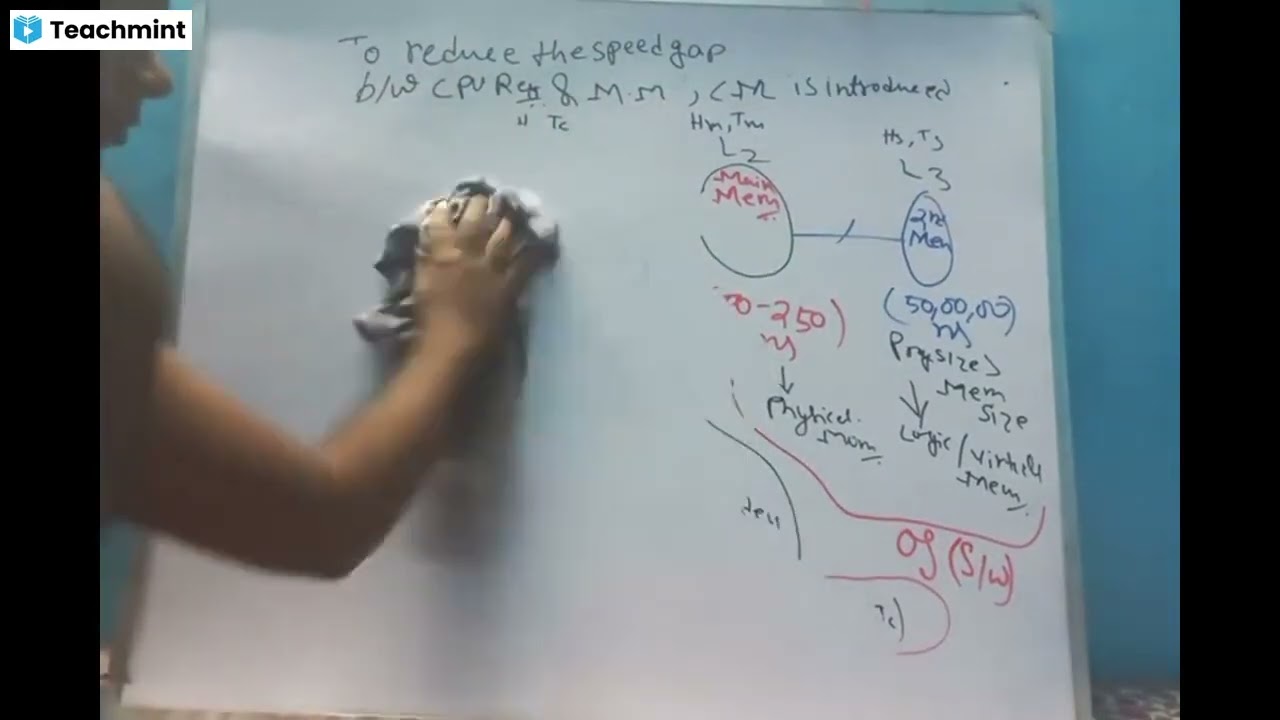 Teachmint
To reduce the speed gap
b/w CPU Reg & M.M, CM is introduced
H Tc
Hm, Tm
Hs, Ts
L2
L3
Main
Mem
2nd
Mem
0-250)
ns
(50,00,00)
ns
Prog size >
Mem
size
Physical
Mem
Logic/Virtual
Mem
OS (S/w)
Tc)